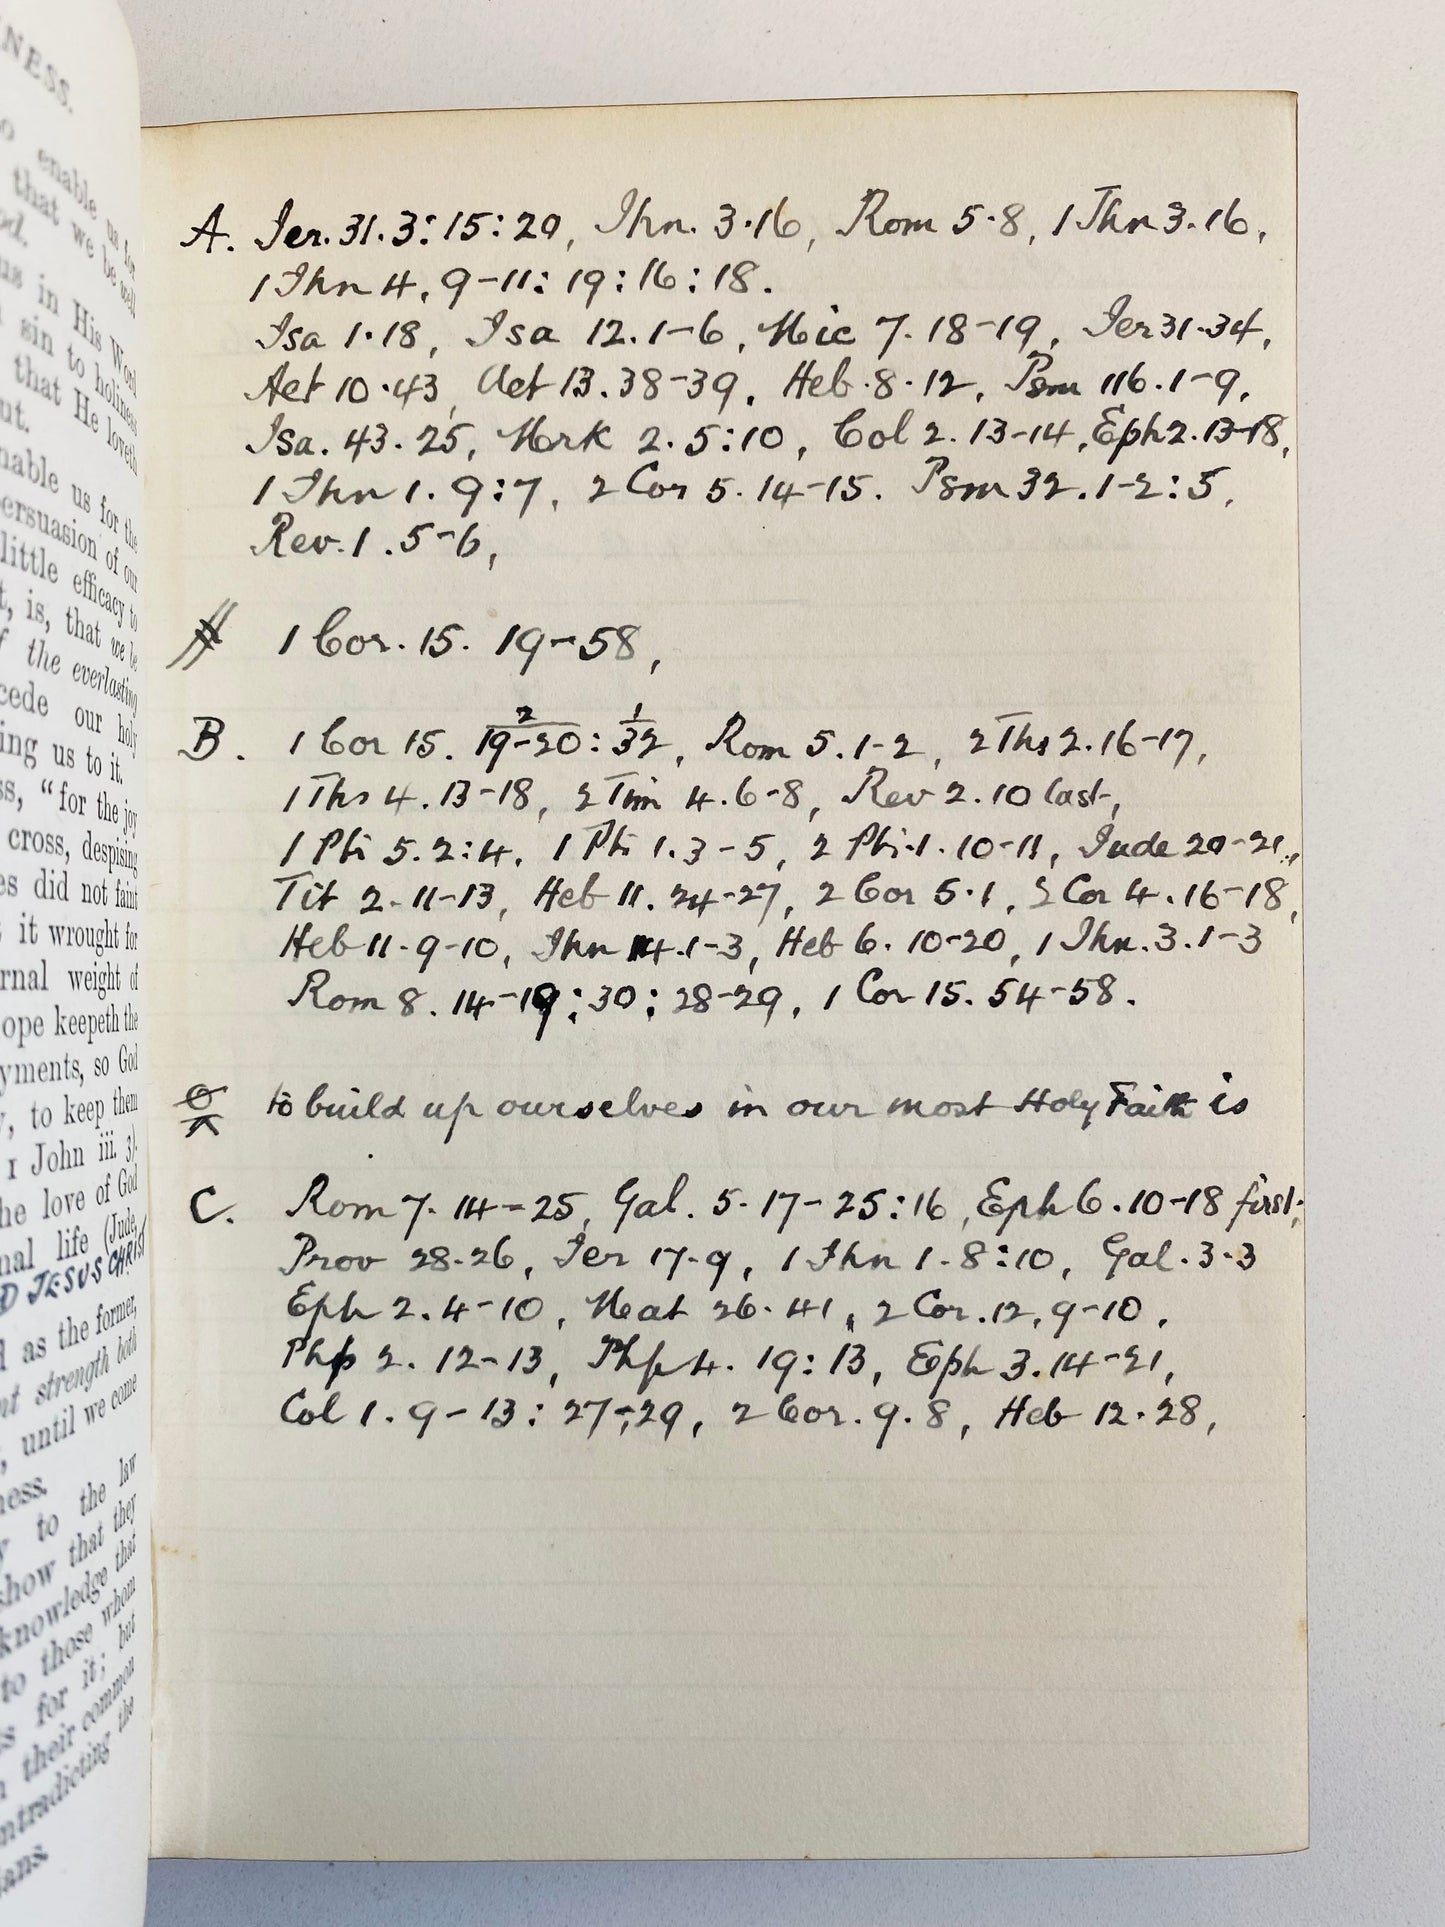 NESS.
enable us for
that we be well
us in His Word
sin to holiness
that He loveth
ut.
nable us for the
ersuasion of our
little efficacy to
t, is, that we be
f the everlasting
cede our holy
ing us to it.
ss, "for the joy
cross, despising
es did not faint
it wrought for
rnal weight of
ope keepeth the
yments, so God
, to keep them
1 John iii. 3).
he love of God
nal life (Jude,
D JESUS CHRIST
as the former,
nt strength both
, until we come
ness.
y to the law
show that they
knowledge that
to those whom
s for it; but
n their common
ntradicting the
ians.
A. Jer. 31. 3: 15: 20, Jhn. 3·16, Rom 5·8, 1 Jhn 3. 16,
1 Jhn 4. 9-11: 19: 16: 18.
Isa 1·18, Isa 12. 1-6, Mic 7. 18-19, Jer 31·34,
Act 10·43, Act 13. 38-39, Heb·8·12, Psm 116. 1-9,
Isa. 43. 25, Mrk 2. 5:10, Col 2. 13-14, Eph 2. 13-18,
1 Jhn 1. 9:7, 2 Cor 5. 14-15. Psm 32. 1-2: 5,
Rev. 1. 5-6,
1 Cor. 15. 19-58,
B. 1 Cor 15. 2 19-20: 1 32, Rom 5. 1-2, 2 Ths 2. 16-17,
1 Ths 4. 13-18, 2 Tim 4. 6-8, Rev 2. 10 last,
1 Pti 5. 2:4, 1 Pti 1. 3-5, 2 Pti·1. 10-11, Jude 20-21,
Tit 2-11-13, Heb 11. 24-27, 2 Cor 5·1, 2 Cor 4. 16-18,
Heb 11-9-10, Jhn 14. 1-3, Heb 6. 10-20, 1 Jhn. 3. 1-3
Rom 8. 14-19: 30: 28-29, 1 Cor 15. 54-58.
to build up ourselves in our most Holy Faith is
C. Rom 7. 14-25, Gal. 5·17-25:16, Eph 6. 10-18 first,
Prov 28·26, Jer 17·9, 1 Jhn 1·8:10, Gal. 3·3
Eph 2. 4-10, Mat 26·41, 2 Cor. 12. 9-10,
Php 2. 12-13, Php 4. 19: 13, Eph 3. 14-21,
Col 1. 9-13: 27-29, 2 Cor. 9. 8, Heb 12·28,